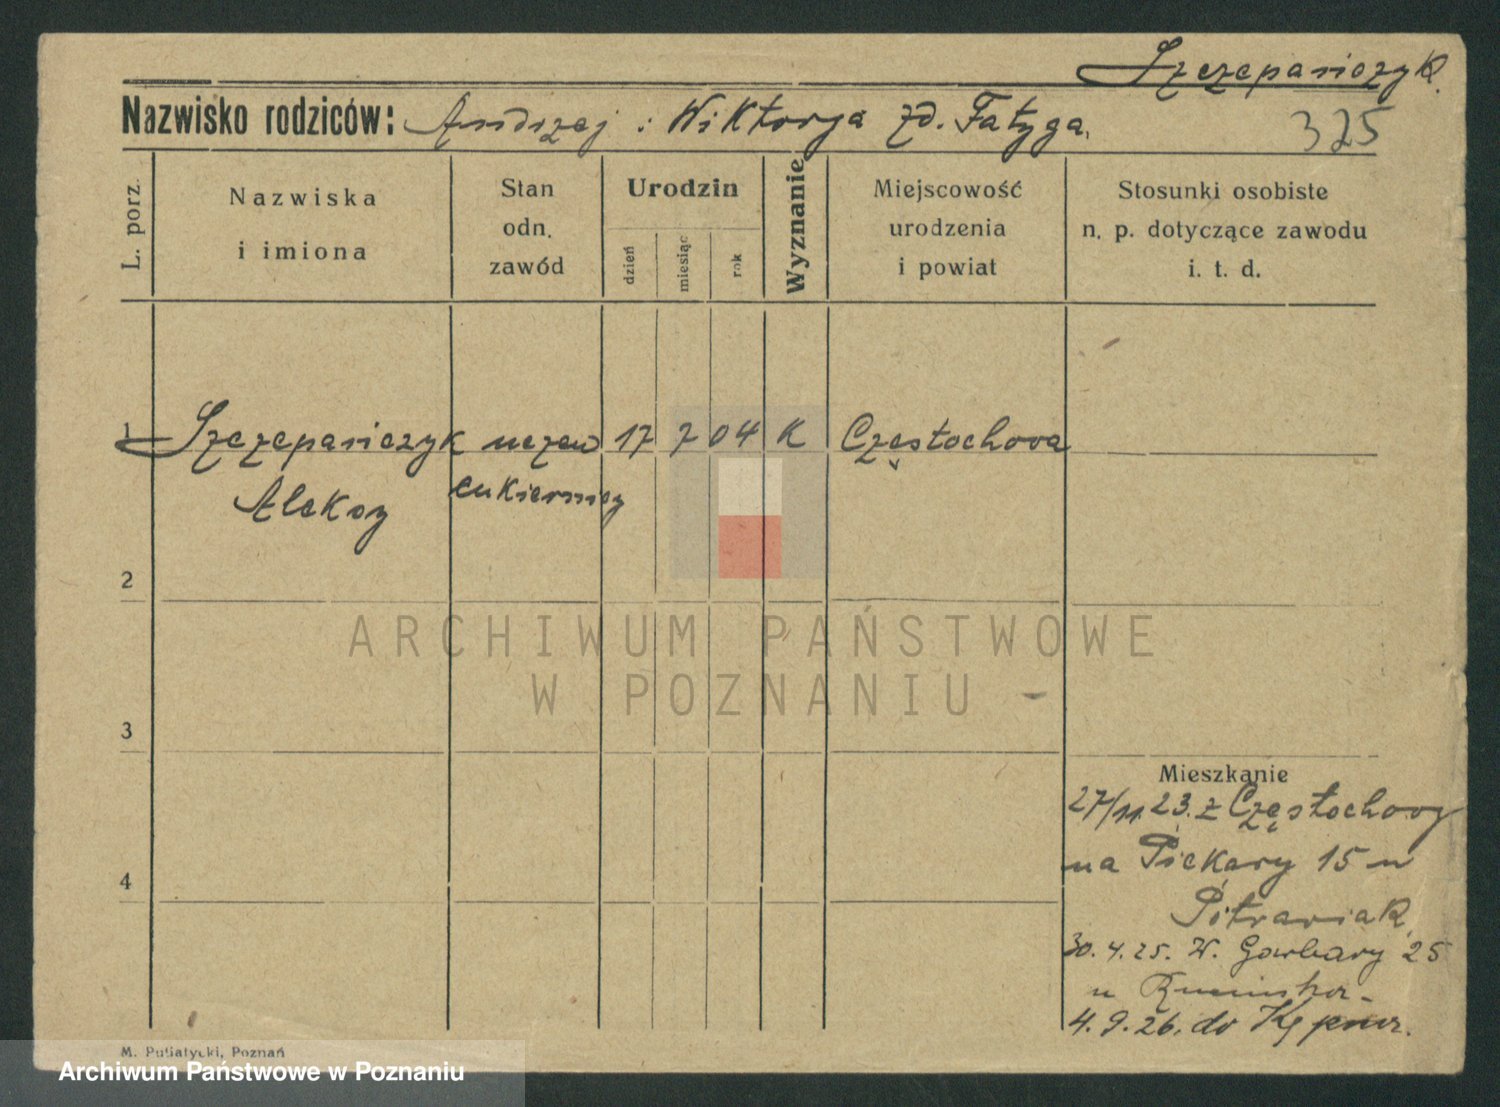 Szczepańczyk.
Nazwisko rodziców: Andrzej i Wiktorja zd. Fatyga.
325
L. porz.
Nazwiska
i imiona
Stan
odn.
zawód
Urodzin
dzień
miesiąc
rok
Wyznanie
Miejscowość
urodzenia
i powiat
Stosunki osobiste
n. p. dotyczące zawodu
i. t. d.
1 Szczepańczyk uczeń 17 7 04 K Częstochowa
Aleksy cukierniczy
2
ARCHIWUM PAŃSTWOWE
W POZNANIU
3
Mieszkanie
27/11.23. z Częstochowy
na Piekary 15 u
4
Pitraniak
30.4.25. W. Garbary 25
u
4.9.26. do Kępna.
M. Putiatycki, Poznań
Archiwum Państwowe w Poznaniu